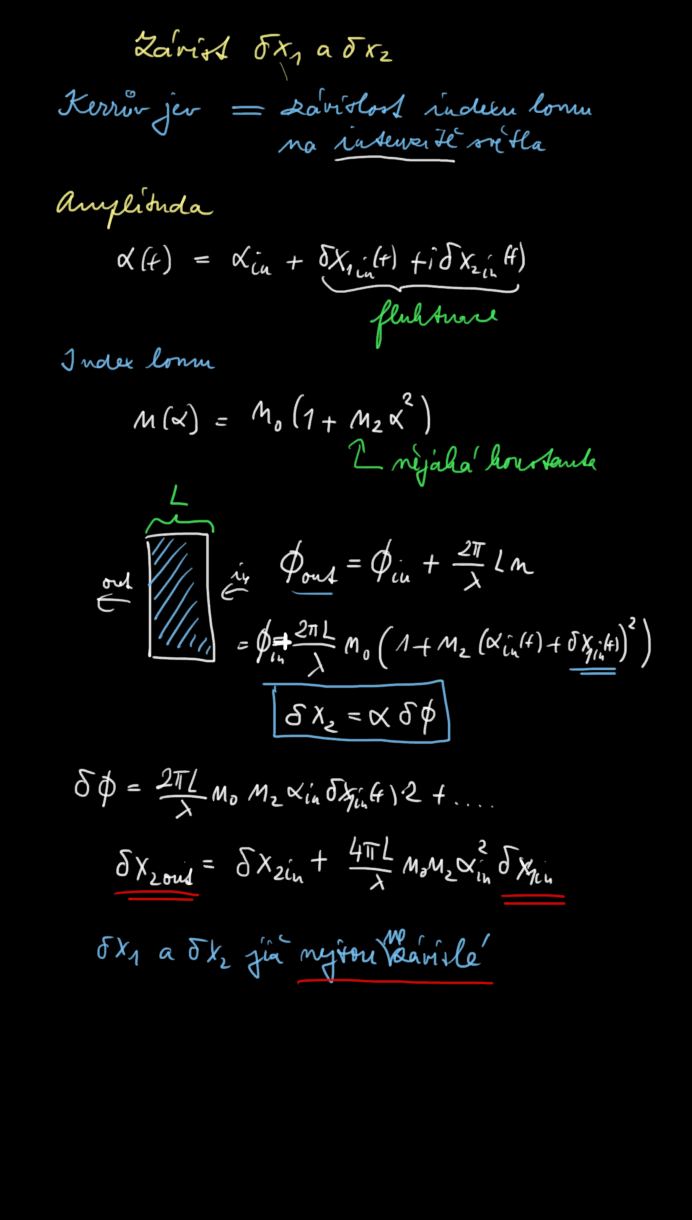 Závist δx₁ a δx₂
Kerrův jev = závislost indexu lomu
na intenzitě světla
Amplituda
α(t) = αᵢₙ + δX₁ᵢₙ(t) + iδX₂ᵢₙ(t)
fluktuace
Index lomu
n(α) = n₀(1 + n₂α²)
nějaká konstanta
L
out
in
ϕₒᵤₜ = ϕᵢₙ + 2π/λ L n
= ϕᵢₙ + 2πL/λ n₀(1 + n₂(αᵢₙ(t) + δX₁ᵢₙ(t))²)
δX₂ = α δϕ
δϕ = 2πL/λ n₀ n₂ αᵢₙ δX₁ᵢₙ(t)·2 + ....
δX₂ₒᵤₜ = δX₂ᵢₙ + 4πL/λ n₀n₂α²ᵢₙ δX₁ᵢₙ
δX₁ a δX₂ již nejsou nezávislé